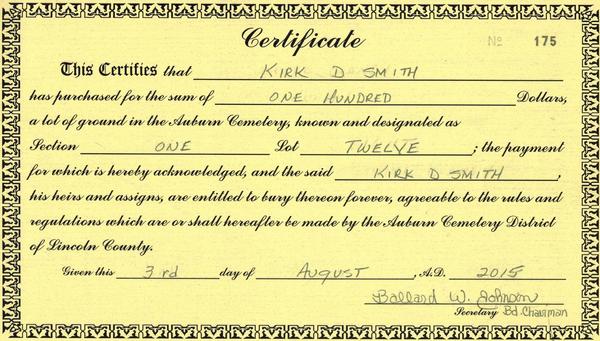 Certificate № 175
This Certifies that KIRK D SMITH
has purchased for the sum of ONE HUNDRED Dollars,
a lot of ground in the Auburn Cemetery, known and designated as
Section ONE Lot TWELVE ; the payment
for which is hereby acknowledged, and the said KIRK D SMITH ,
his heirs and assigns, are entitled to bury thereon forever, agreeable to the rules and
regulations which are or shall hereafter be made by the Auburn Cemetery District
of Lincoln County.
Given this 3rd day of AUGUST , A.D. 2015
Ballard W. Johnson
Secretary Bd. Chairman